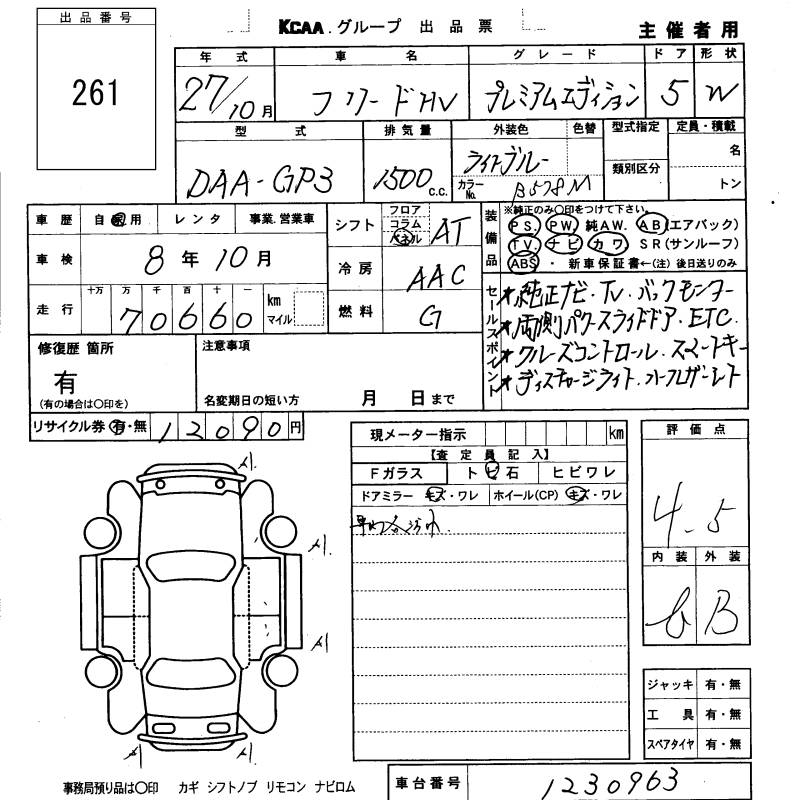 出品番号
261
KCAA.グループ 出品票
主催者用
年式 車名 グレード ドア 形状
27/10月 フリードHV プレミアムエディション 5 W
型式 排気量 外装色 色替 型式指定 定員・積載
DAA-GP3 1500 c.c. ライトブルー 名
カラーNo. B578M 類別区分 トン
車歴 自家用 レンタ 事業.営業車
車検 8年10月
走行 十万 万 千 百 十 一
70660 km マイル
シフト フロア コラム パネル AT
冷房 AAC
燃料 G
装備品 ※純正のみ〇印をつけて下さい。
PS. PW. 純AW. AB(エアバック)
TV. ナビ カワ SR(サンルーフ)
ABS ・ 新車保証書←(注)後日送りのみ
セールスポイント
★純正ナビ・TV・バックモニター
★両側パワースライドドア・ETC.
★クルーズコントロール・スマートキー
★ディスチャージライト.オートクロザーシート
修復歴 箇所
有
(有の場合は〇印を)
注意事項
名変期日の短い方 月 日まで
リサイクル券 有・無 12090円
現メーター指示 km
【査定員記入】
Fガラス トビ石 ヒビワレ
ドアミラー キズ・ワレ ホイール(CP) キズ・ワレ
評価点
4.5
内装 外装
B
A
A
A
A
A
ジャッキ 有・無
工具 有・無
スペアタイヤ 有・無
事務局預り品は〇印 カギ シフトノブ リモコン ナビロム
車台番号 1230963